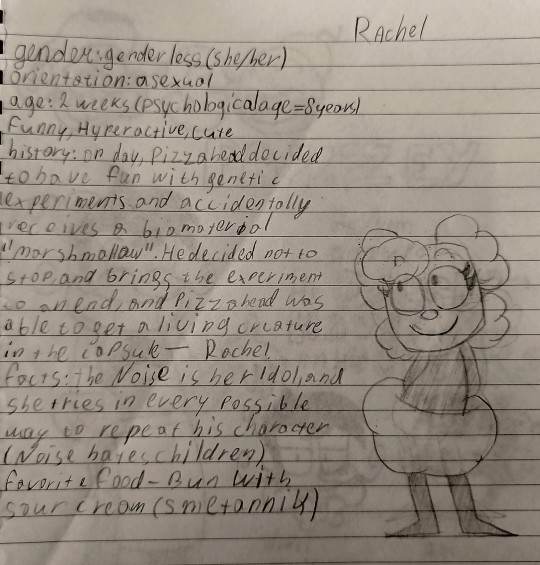 Rachel
gender: genderless (she/her)
orientation: asexual
age: 2 weeks (psychological age = 8 years)
Funny, Hyperactive, Cute
history: on day, Pizzahead decided
to have fun with genetic
experiments and accidentally
receives a biomaterial
"marshmallow". He decided not to
stop and brings the experiment
to an end, and Pizzahead was
able to get a living creature
in the capsule — Rachel.
facts: the Noise is her Idol, and
she tries in every possible
way to repeat his character
(Noise hates children)
favorite food - Bun with
sour cream (smetannik)